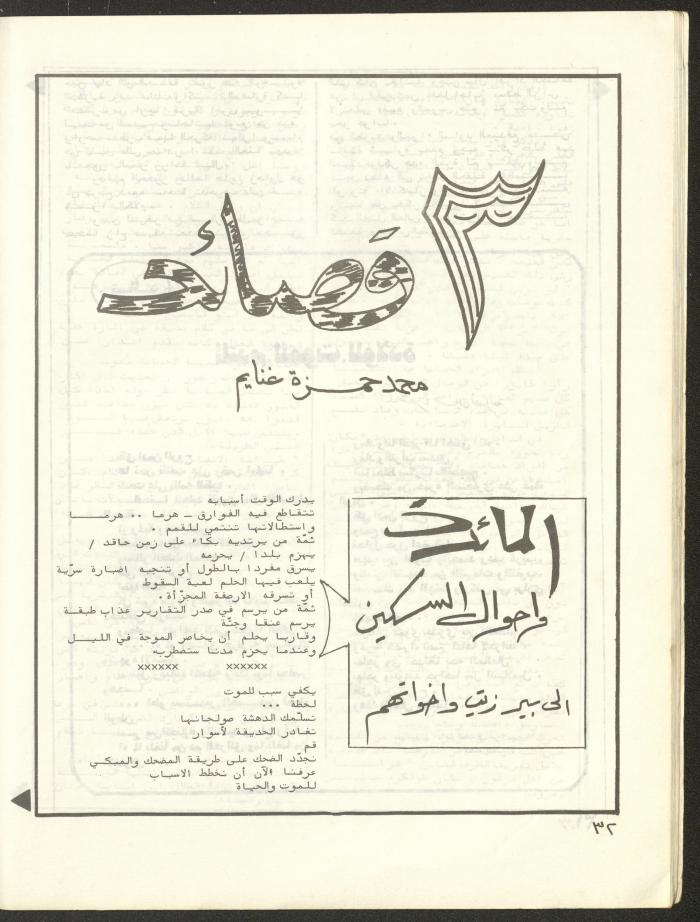 ٣ قصائد
محمد حمزة غنايم
المائدة
واحوال السكين
الى بير زيت واخواتهم
يدرك الوقت أسبابه
تتقاطع فيه الفوارق ــ هرما .. هرمــا
واستطالاتها تنتمي للقمم
ثمّة من يرتديه بكاء على زمن حاقد /
يهزم بلدا / يحزمه
يسرق مفردا بالطول أو تنجبه اضبارة سرّية
يلعب فيها الحلم لعبة السقوط
أو تسرقه الارصفة المجزّأة .
ثمّة من يرسم في صدر التقارير عذاب طبقة
يرسم عنقا وجثّة
وقاربا يحلم أن يخاصر الموجة في الليــل
وعندما يحزم مدنا ستضطرب.
×××××× ××××××
يكفي سبب للموت
لحظة ...
تسلّمك الدهشة صولجانها
تغادر الحديقة لأسوار
قم
نجدّد الضحك على طريقة المضحك والمبكــي
عرفنا الآن أن نخطط الاسباب
للموت والحياة
٣٢